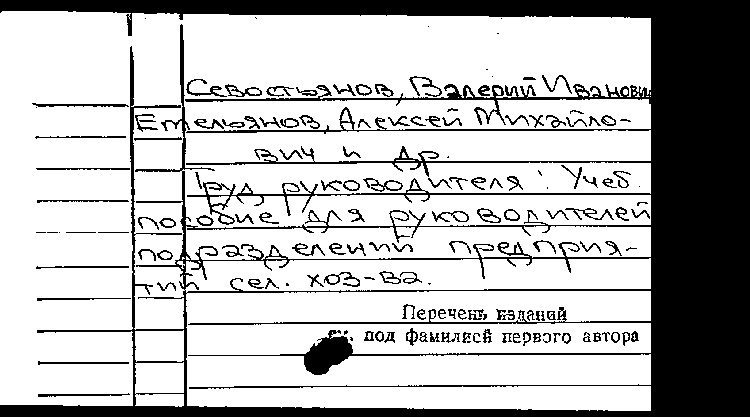 Севостьянов, Валерий Иванович
Емельянов, Алексей Михайло-
вич и др.
Труд руководителя: Учеб.
пособие для руководителей
подразделений предприя-
тий сел. хоз-ва.
Перечень изданий
см. под фамилией первого автора